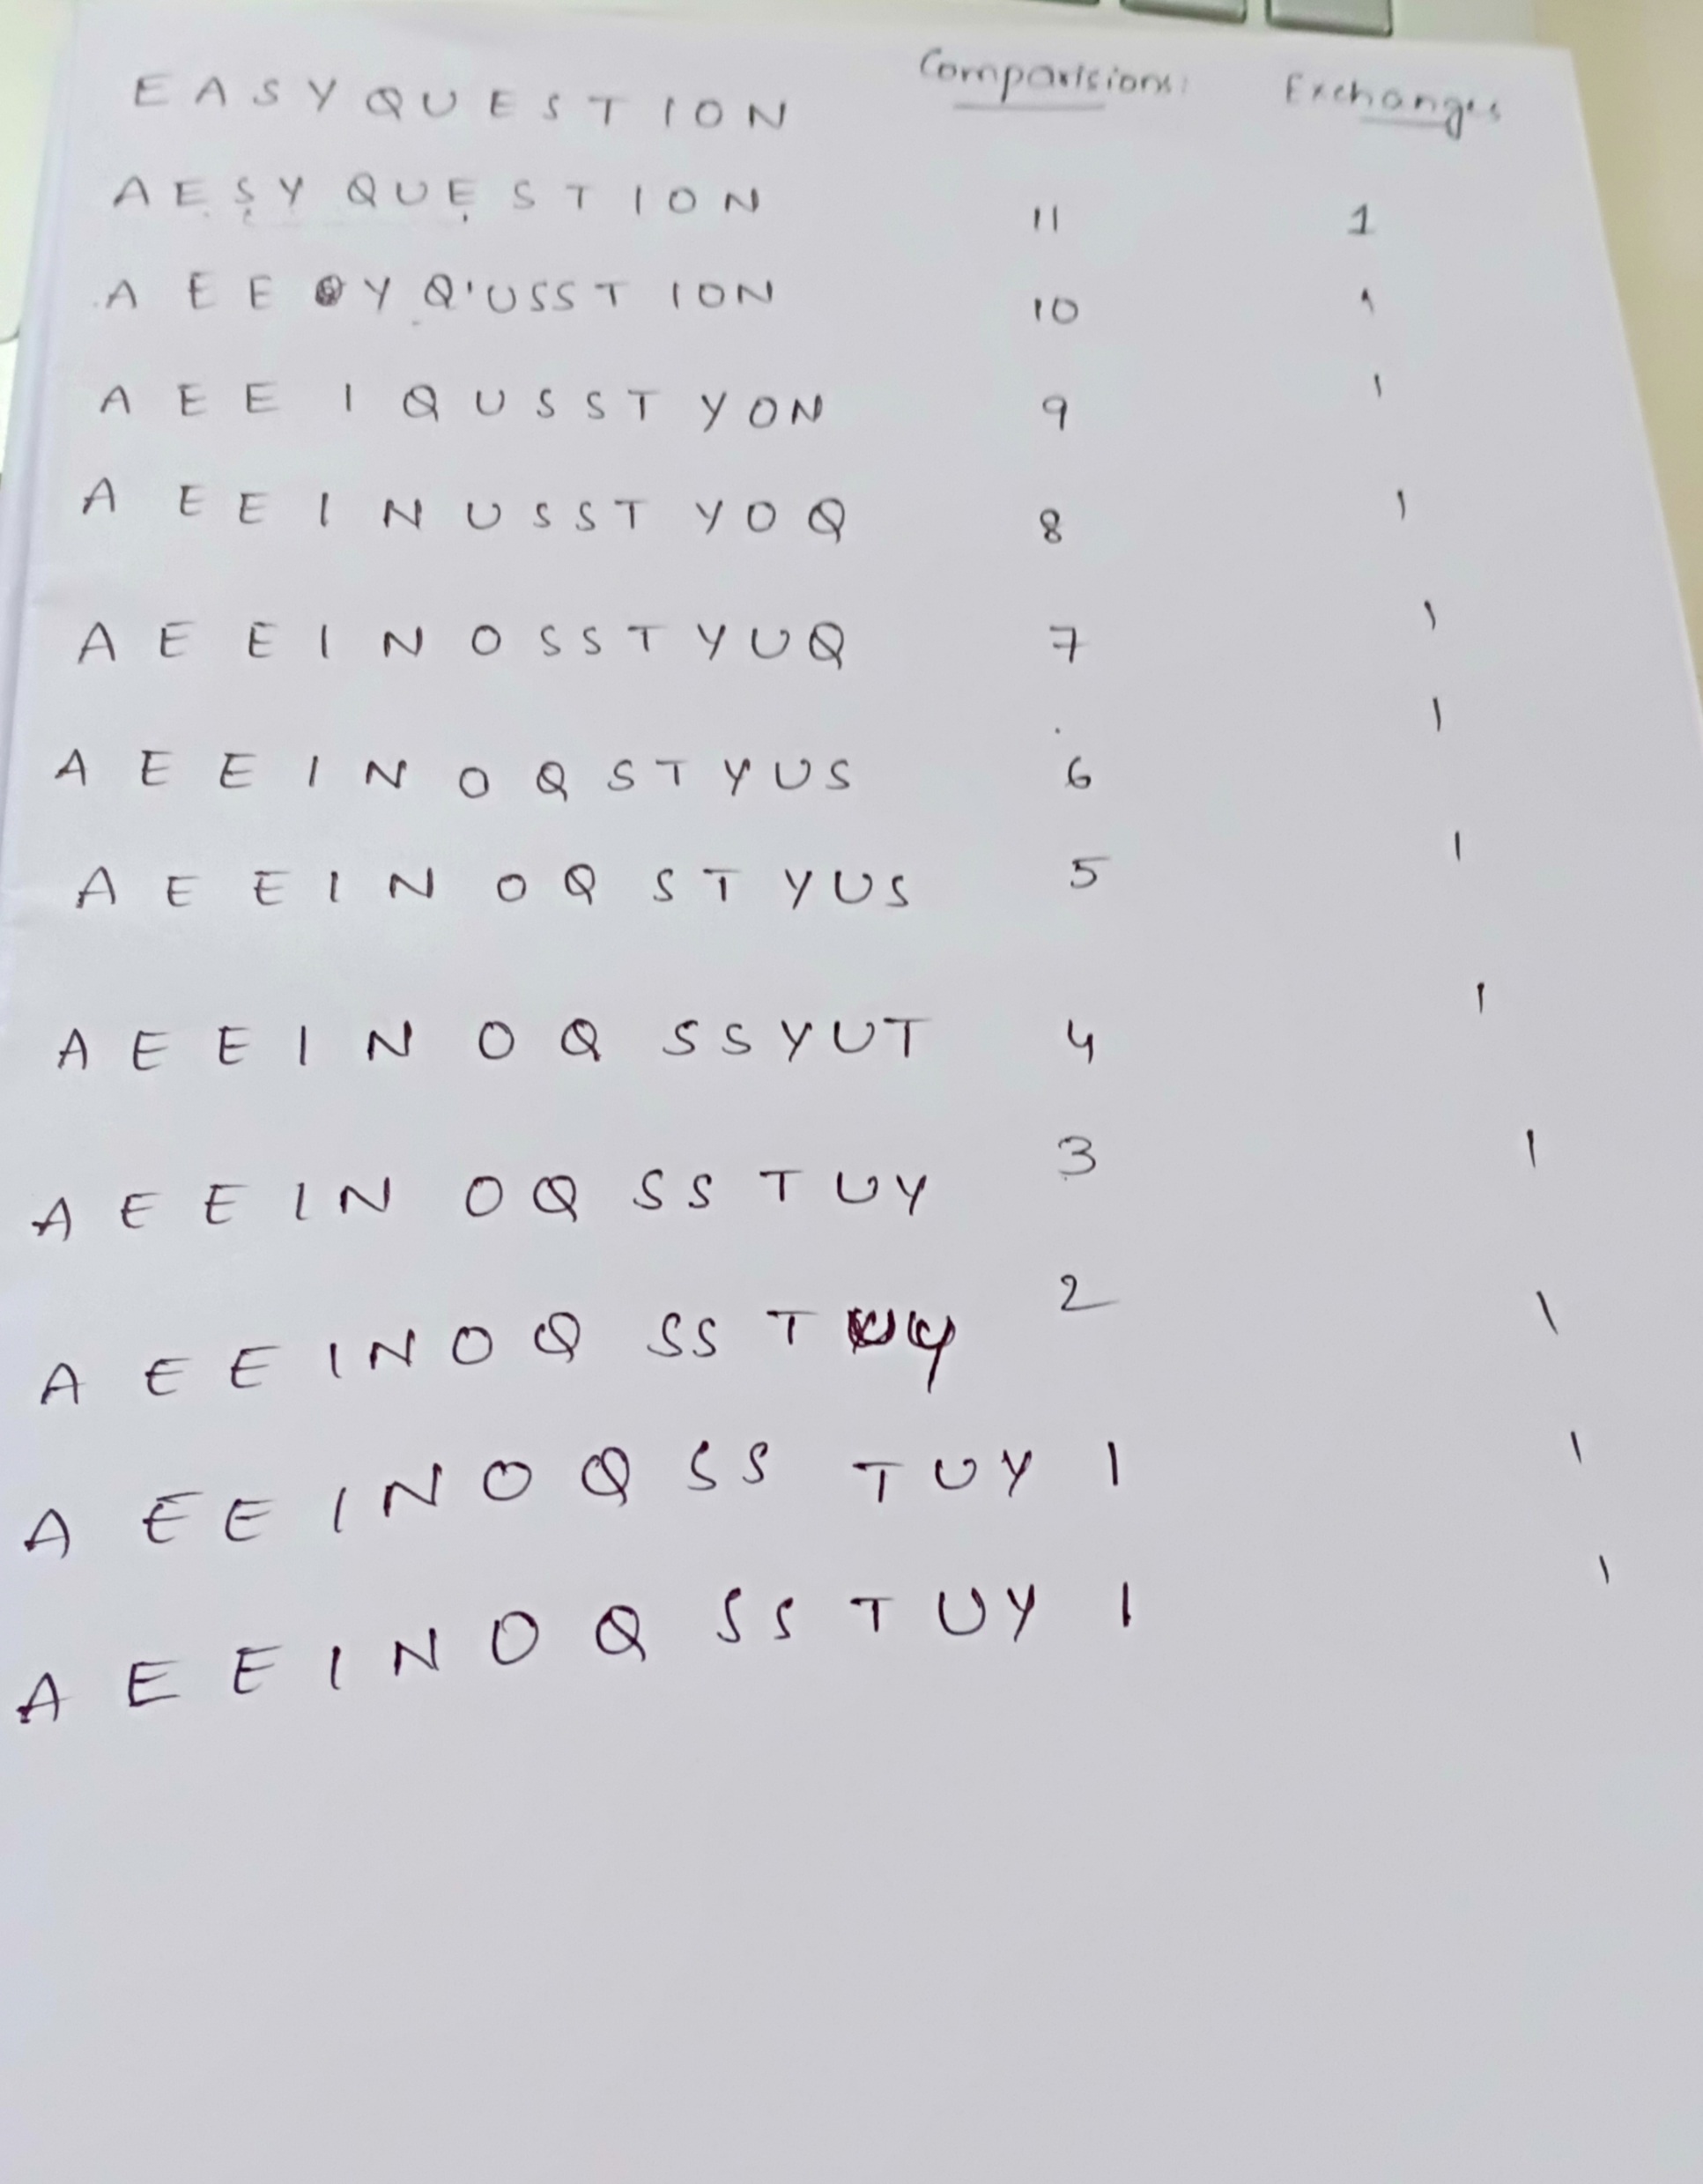 EASYQUESTION Comparisions: Exchanges
AESYQUESTION 11 1
AEEYQUSSTION 10 1
AEEIQUSSTYON 9 1
AEEINUSSTYOQ 8 1
AEEINOSSTYUQ 7 1
AEEINOQSTYUS 6 1
AEEINOQSTYUS 5 1
AEEINOQSSYUT 4 1
AEEINOQSSTUY 3 1
AEEINOQSSTUY 2 1
AEEINOQSSTUY 1 1
AEEINOQSSTUY 1 1